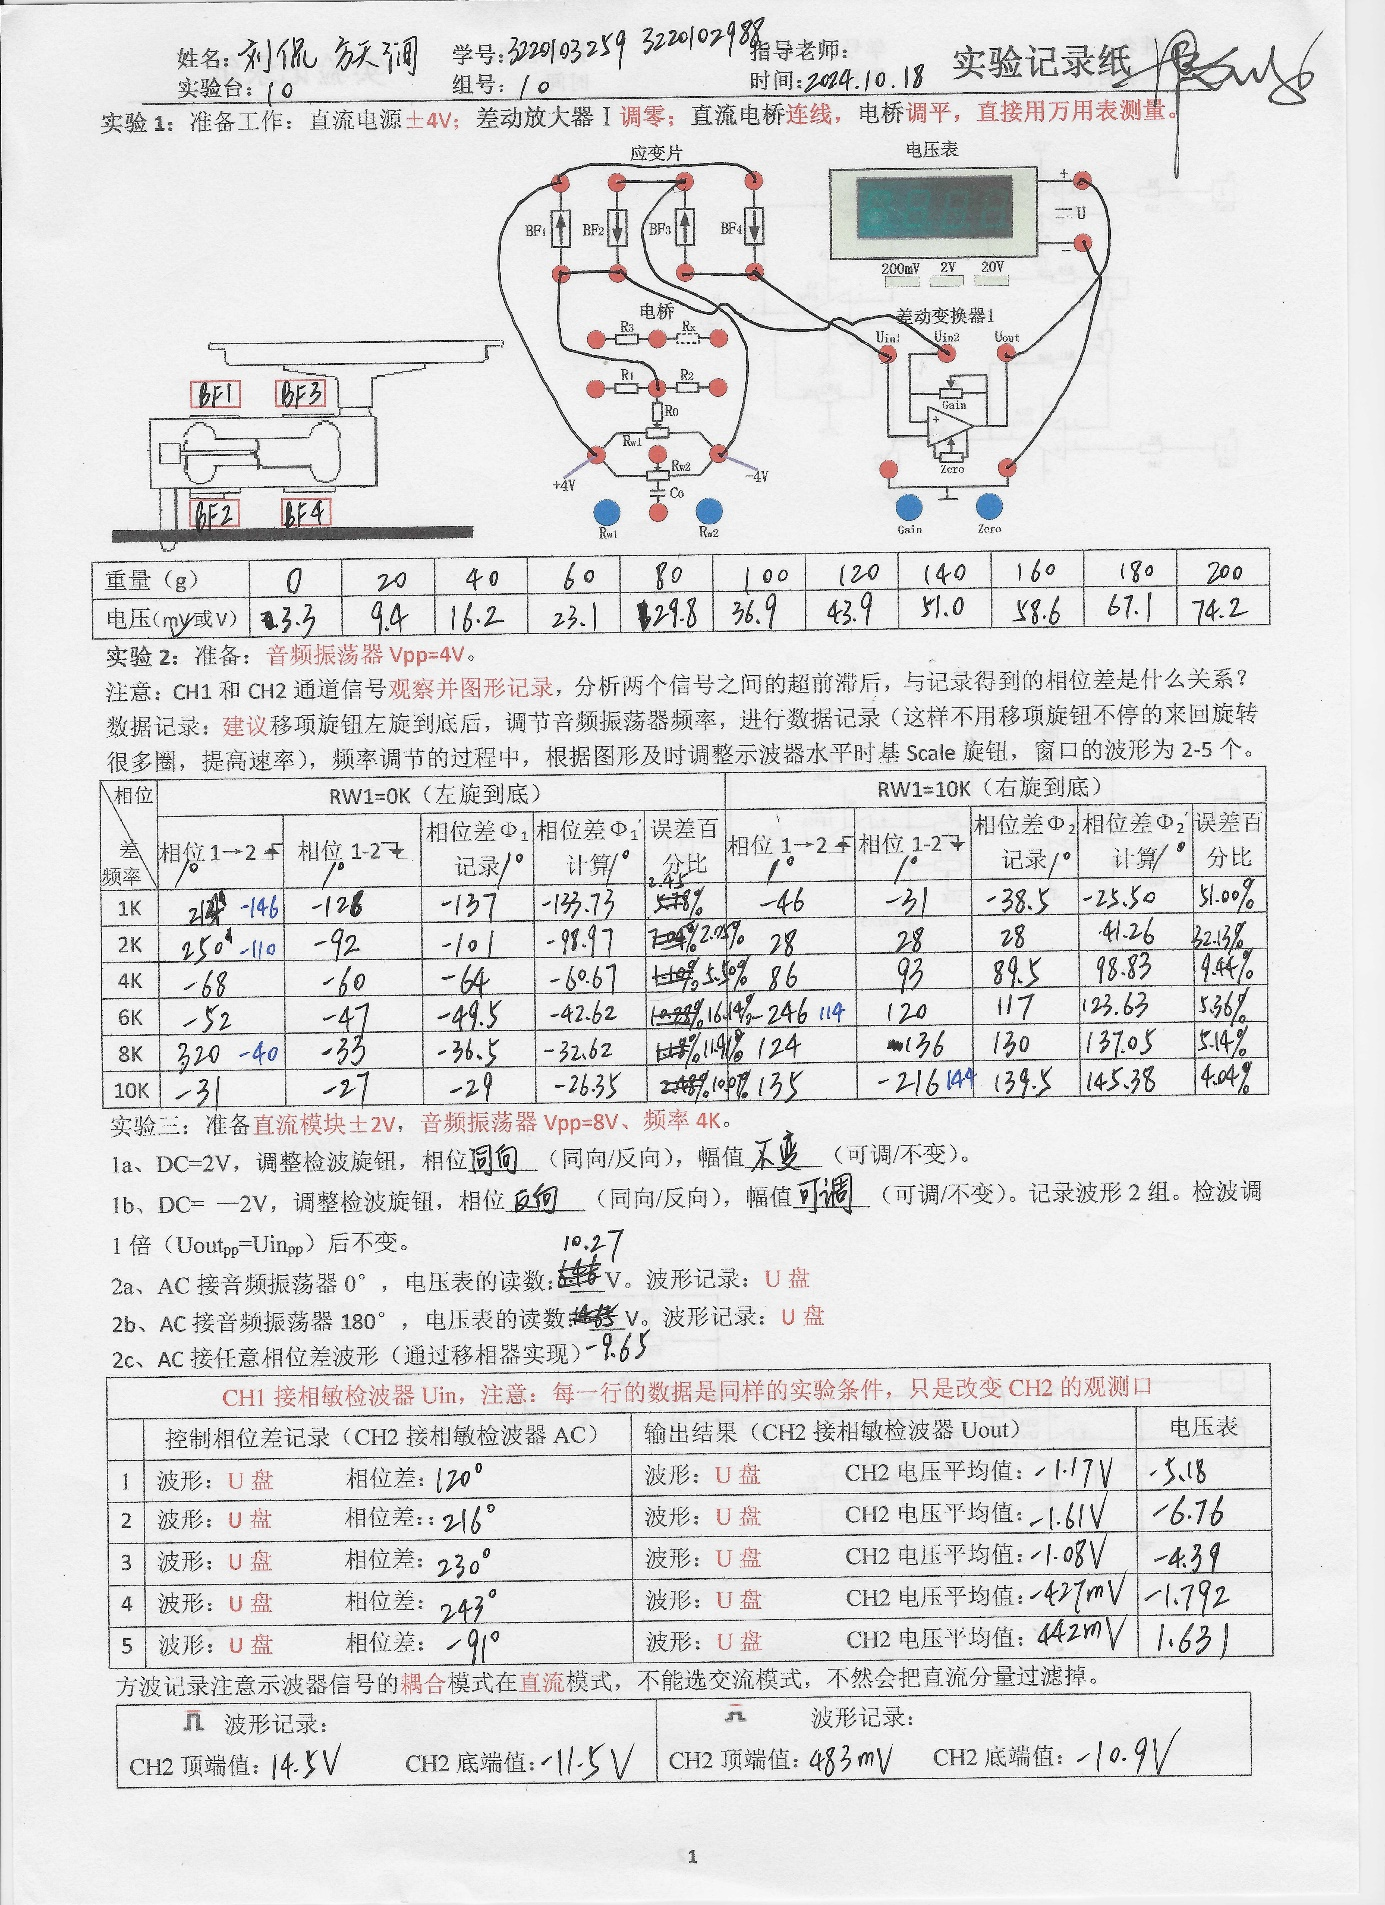 姓名：刘侃 方天润 学号：3220103259 3220102988 指导老师： 实验记录纸
实验台：10 组号：10 时间：2024.10.18
实验 1：准备工作：直流电源±4V；差动放大器 I 调零；直流电桥连线，电桥调平，直接用万用表测量。
应变片 电压表
+
BF1 BF2 BF3 BF4 U
−
200mV 2V 20V
电桥 差动变换器1
R3 Rx Uin1 Uin2 Uout
BF1 BF3 R1 R2
R0 Gain
Rw1
Rw2 Zero
+4V −4V
C0
BF2 BF4
Rw1 Rw2 Gain Zero
重量（g） 0 20 40 60 80 100 120 140 160 180 200
电压(mV或V) 3.3 9.4 16.2 23.1 29.8 36.9 43.9 51.0 58.6 67.1 74.2
实验 2：准备：音频振荡器 Vpp=4V。
注意：CH1 和 CH2 通道信号观察并图形记录，分析两个信号之间的超前滞后，与记录得到的相位差是什么关系？
数据记录：建议移项旋钮左旋到底后，调节音频振荡器频率，进行数据记录（这样不用移项旋钮不停的来回旋转
很多圈，提高速率），频率调节的过程中，根据图形及时调整示波器水平时基 Scale 旋钮，窗口的波形为 2-5 个。
相位差 频率 RW1=0K（左旋到底） RW1=10K（右旋到底）
相位 1→2 /° 相位 1-2 /° 相位差Φ1 记录/° 相位差Φ1′ 计算/° 误差百分比 相位 1→2 /° 相位 1-2 /° 相位差Φ2 记录/° 相位差Φ2′ 计算/° 误差百分比
1K -146 -128 -137 -133.73 2.45% -46 -31 -38.5 -25.50 51.00%
2K 250 -110 -92 -101 -98.97 2.25% 28 28 28 41.26 32.13%
4K -68 -60 -64 -60.67 5.50% 86 93 89.5 98.83 9.44%
6K -52 -47 -49.5 -42.62 16.14% -246 114 120 117 123.63 5.36%
8K 320 -40 -33 -36.5 -32.62 11.91% 124 136 130 137.05 5.14%
10K -31 -27 -29 -26.35 10.07% 135 -216 144 139.5 145.38 4.04%
实验三：准备直流模块±2V，音频振荡器 Vpp=8V、频率 4K。
1a、DC=2V，调整检波旋钮，相位同向（同向/反向），幅值不变（可调/不变）。
1b、DC= —2V，调整检波旋钮，相位反向（同向/反向），幅值可调（可调/不变）。记录波形 2 组。检波调
1 倍（Uoutpp=Uinpp）后不变。
2a、AC 接音频振荡器 0°，电压表的读数：10.27 V。波形记录：U 盘
2b、AC 接音频振荡器 180°，电压表的读数：-9.65 V。波形记录：U 盘
2c、AC 接任意相位差波形（通过移相器实现）
CH1 接相敏检波器 Uin，注意：每一行的数据是同样的实验条件，只是改变 CH2 的观测口
控制相位差记录（CH2 接相敏检波器 AC） 输出结果（CH2 接相敏检波器 Uout） 电压表
1 波形：U 盘 相位差：120° 波形：U 盘 CH2 电压平均值：-1.17V -5.18
2 波形：U 盘 相位差：: 216° 波形：U 盘 CH2 电压平均值：-1.61V -6.76
3 波形：U 盘 相位差：230° 波形：U 盘 CH2 电压平均值：-1.08V -4.39
4 波形：U 盘 相位差：243° 波形：U 盘 CH2 电压平均值：-427mV -1.792
5 波形：U 盘 相位差：-91° 波形：U 盘 CH2 电压平均值：442mV 1.631
方波记录注意示波器信号的耦合模式在直流模式，不能选交流模式，不然会把直流分量过滤掉。
波形记录： 波形记录：
CH2 顶端值：14.5V CH2 底端值：-11.5V CH2 顶端值：483mV CH2 底端值：-10.9V
1